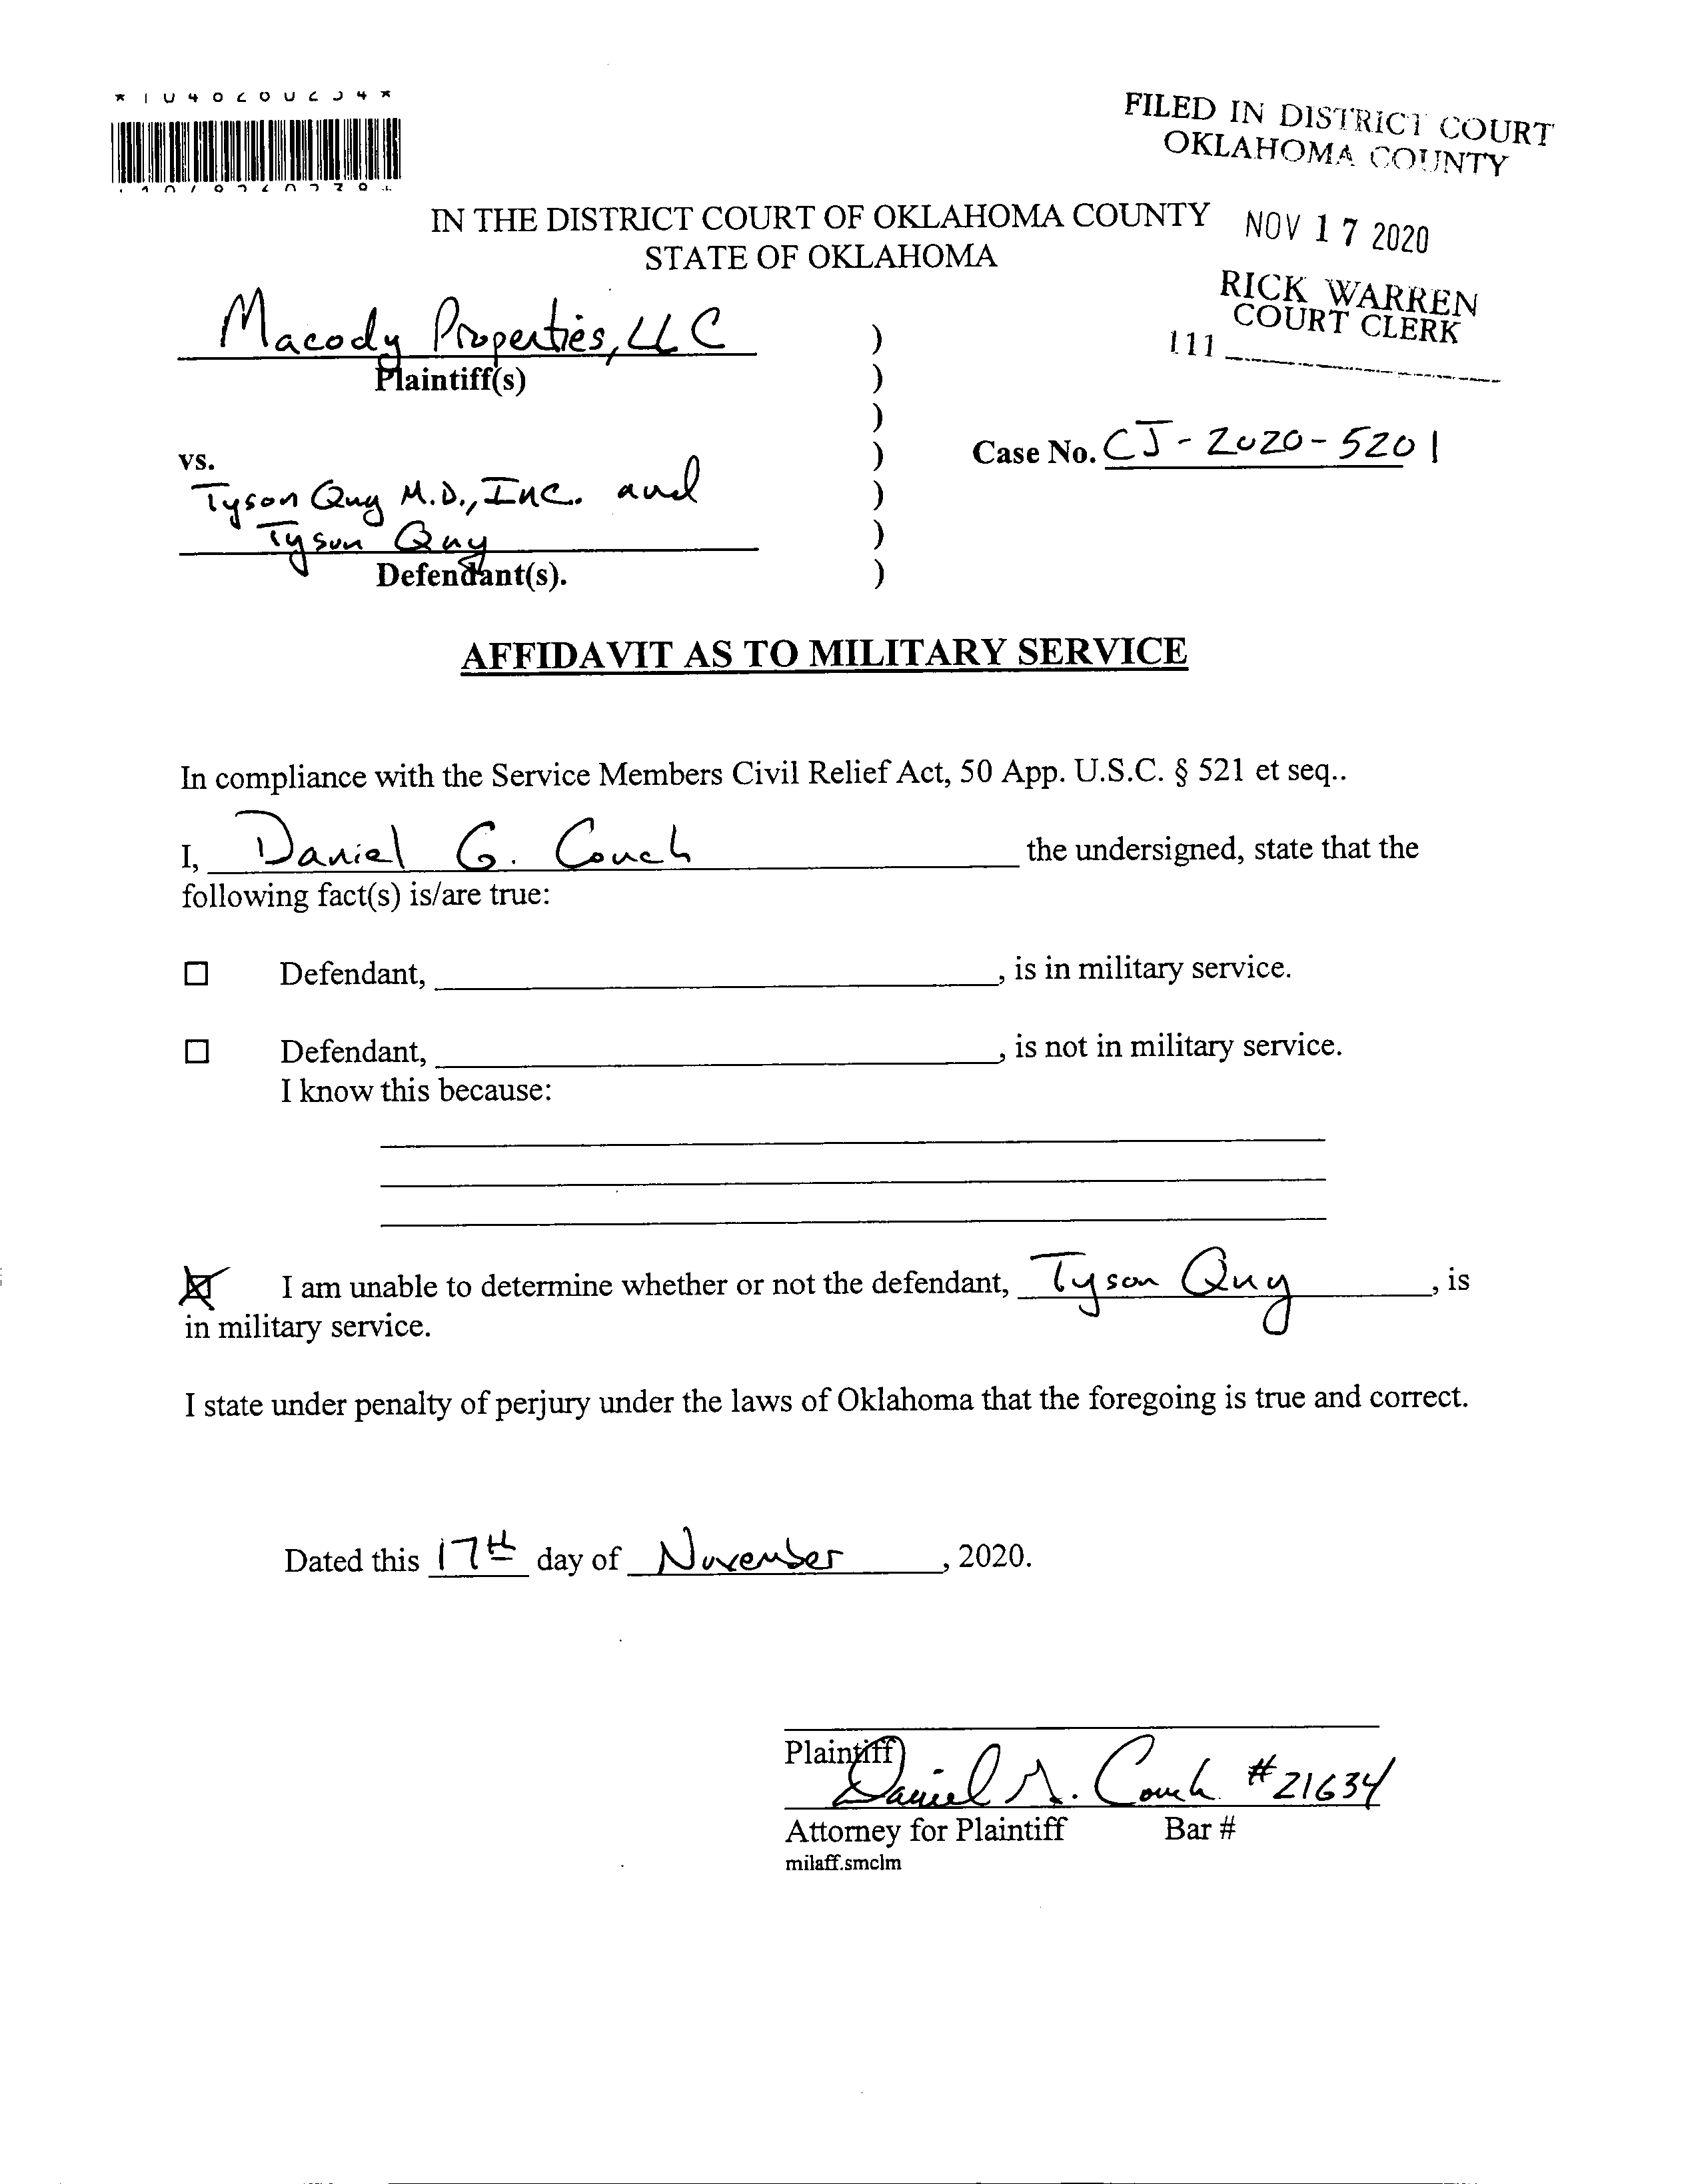 FILED IN DISTRICT COURT
OKLAHOMA COUNTY
IN THE DISTRICT COURT OF OKLAHOMA COUNTY
STATE OF OKLAHOMA
NOV 17 2020
RICK WARREN
COURT CLERK
111
Macody Properties, LLC )
Plaintiff(s) )
)
vs. )
Case No. CJ-2020-5201
Tyson Quy M.D., Inc. and )
Tyson Quy )
Defendant(s). )
AFFIDAVIT AS TO MILITARY SERVICE
In compliance with the Service Members Civil Relief Act, 50 App. U.S.C. § 521 et seq..
I, Daniel G. Couch the undersigned, state that the
following fact(s) is/are true:
☐ Defendant, , is in military service.
☐ Defendant, , is not in military service.
I know this because:
☒ I am unable to determine whether or not the defendant, Tyson Quy , is
in military service.
I state under penalty of perjury under the laws of Oklahoma that the foregoing is true and correct.
Dated this 17th day of November , 2020.
Plaintiff
Daniel G. Couch #21634
Attorney for Plaintiff Bar #
milaff.smclm